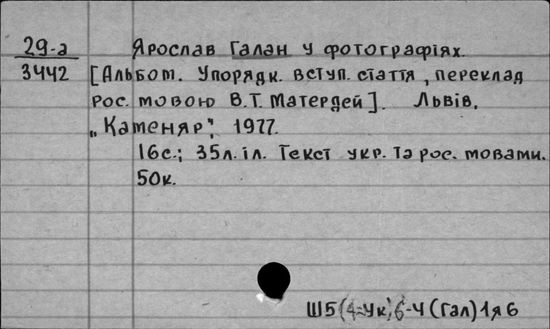 29-а Ярослав Галан у фотографіях.
3442 [Альбом. Упорядк. вступ. стаття, переклад
рос. мовою В.Т. Матердей]. Львів,
„Каменяр", 1977.
16с.; 35л. іл. Текст укр. та рос. мовами.
50к.
Ш5(4=Ук)6-4(Гал)1я6